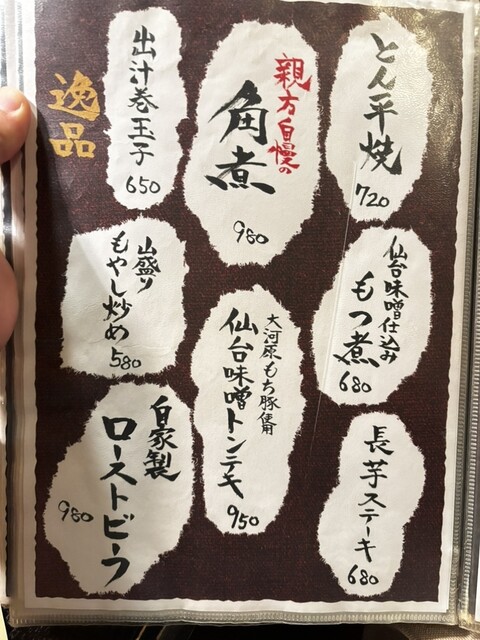 逸品
とん平焼
720
親方自慢の
角煮
980
出汁巻玉子
650
仙台味噌仕込み
もつ煮
680
大河原もち豚使用
仙台味噌トンテキ
950
山盛り
もやし炒め
580
長芋ステーキ
680
自家製
ローストビーフ
980